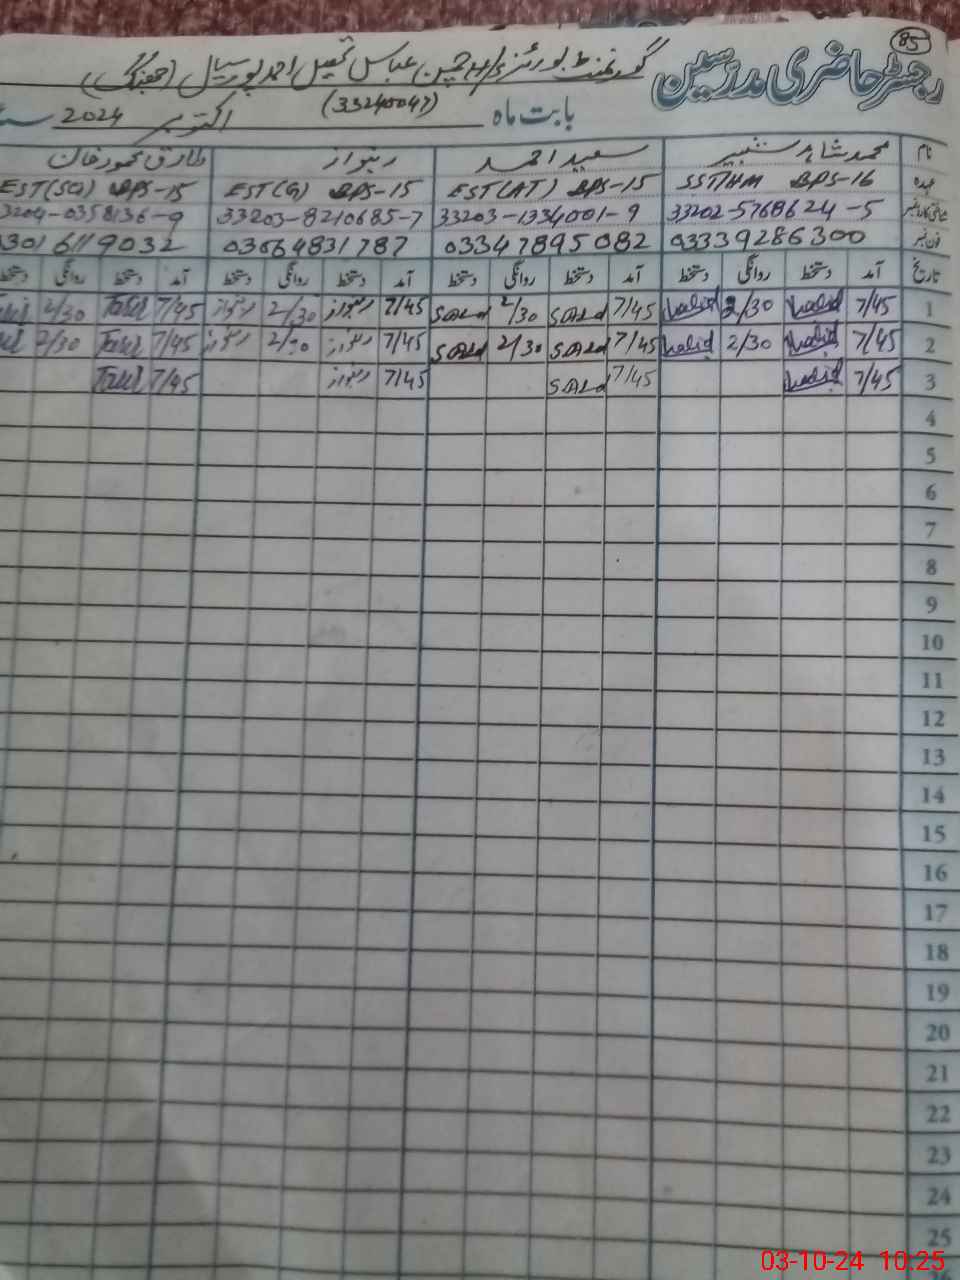 85
رجسٹر حاضری مدرسین
گورنمنٹ بوائز عباس تحصیل احمد پور سیال (جھنگ)
(33240047)
بابت ماہ اکتوبر 2024
نام محمد شاہد شبیر سعید احمد ربنواز طارق محمود خان
عہدہ SST/HM BPS-16 EST(AT) BPS-15 EST(G) BPS-15 EST(SG) BPS-15
33202-5768624-5 33203-1334001-9 33203-8210685-7 3204-0358136-9
فون نمبر 03339286300 03347895082 03064831787 03016119032
تاریخ آمد دستخط روانگی دستخط آمد دستخط روانگی دستخط آمد دستخط روانگی دستخط آمد دستخط روانگی دستخط
1 7/45 Khalid 2/30 Khalid 7/45 SAead 2/30 SAead 7/45 ربنواز 2/30 ربنواز 7/45 Tariq 2/30
2 7/45 Khalid 2/30 Khalid 7/45 SAead 2/30 SAead 7/45 ربنواز 2/30 ربنواز 7/45 Tariq 2/30
3 7/45 Khalid 7/45 SAead 7/45 ربنواز 7/45 Tariq
4
5
6
7
8
9
10
11
12
13
14
15
16
17
18
19
20
21
22
23
24
25
03-10-24 10:25